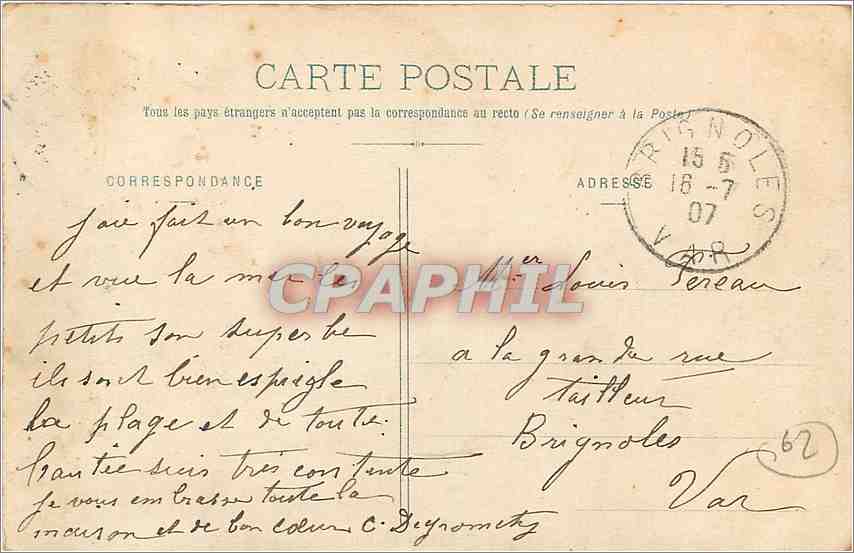 CARTE POSTALE
Tous les pays étrangers n'acceptent pas la correspondance au recto (Se renseigner à la Poste)
CORRESPONDANCE
jaie fait un bon voyage
et vue la mer les
petits son superbe
ils sont bien espiegle
la plage et de toute
bautée suis très contente
je vous embrasse toute la
maison et de bon cœur C.
ADRESSE
BRIGNOLES
15
16 -7
07
VAR
Mer Louis Pereau
a la grande rue
tailleur
Brignoles
Var
62
CPAPHIL